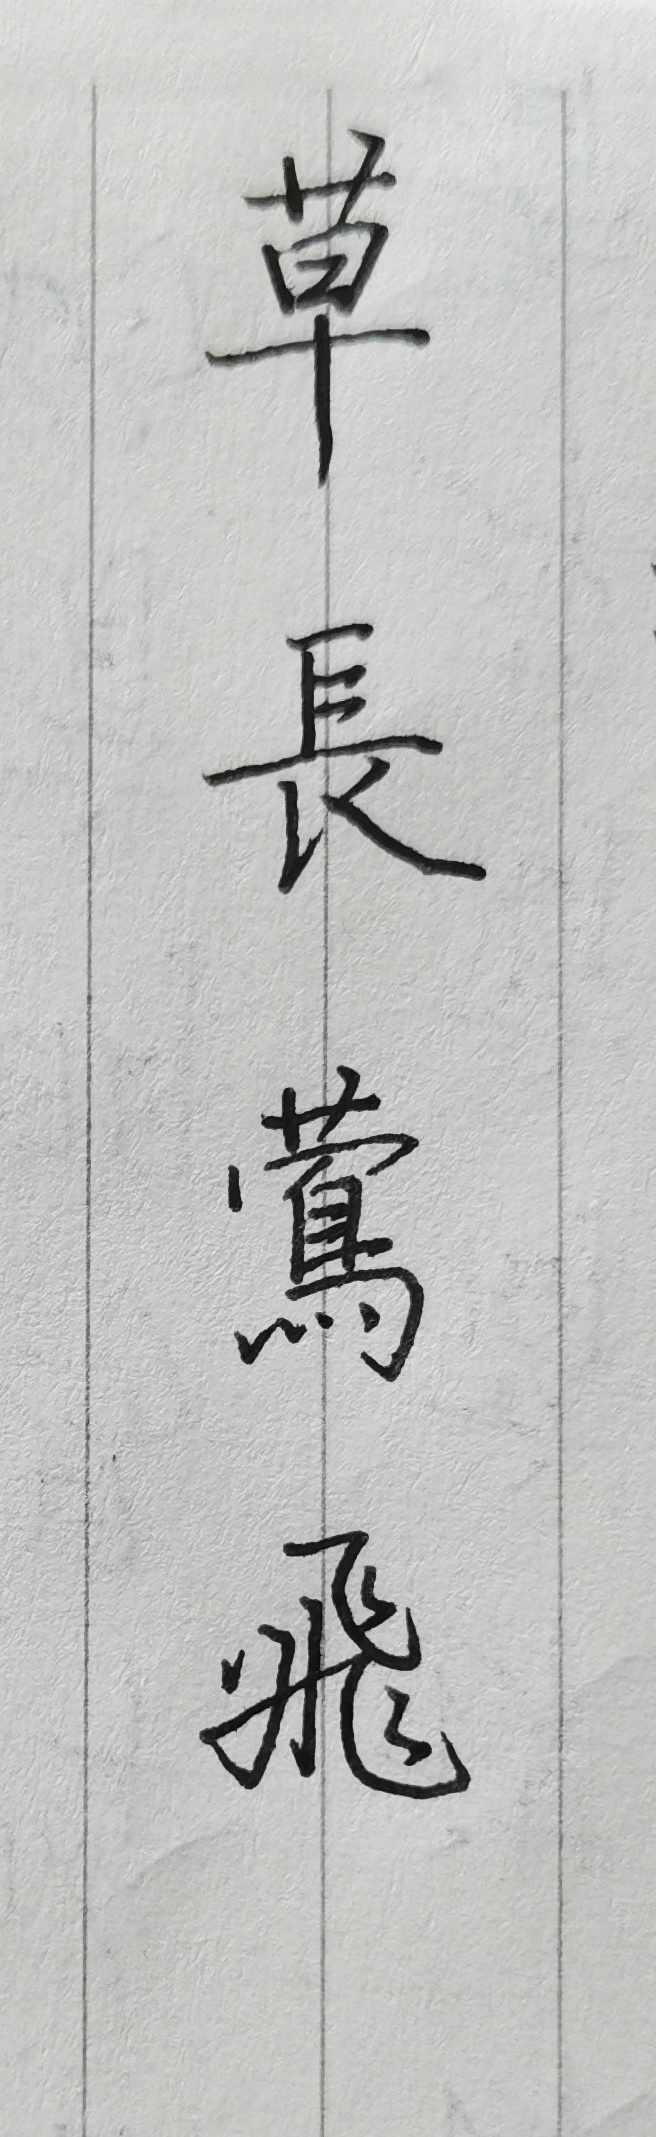 草長鶯飛